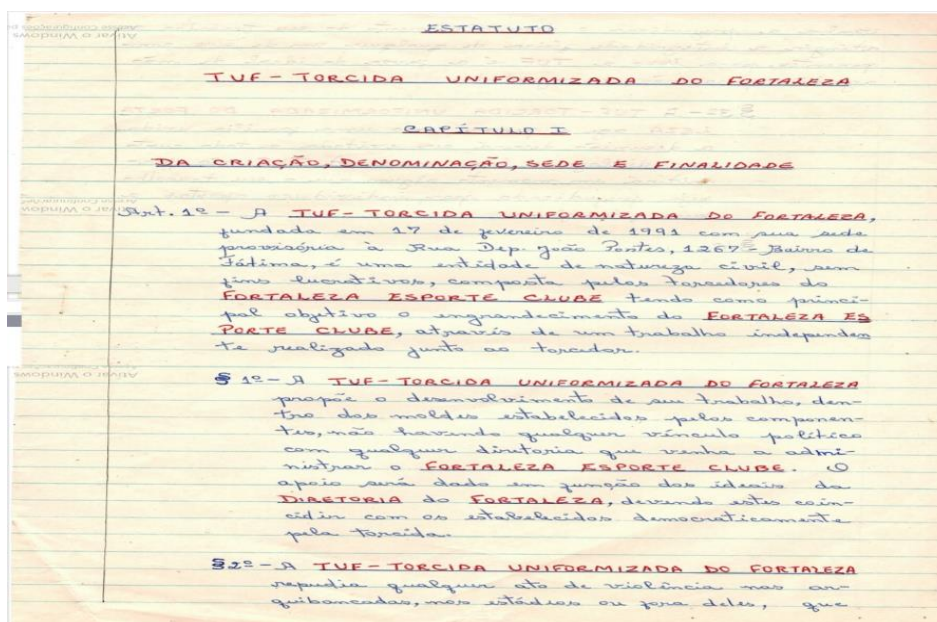 ESTATUTO
TUF - TORCIDA UNIFORMIZADA DO FORTALEZA
CAPÍTULO I
DA CRIAÇÃO, DENOMINAÇÃO, SEDE E FINALIDADE
Art. 1º - A TUF - TORCIDA UNIFORMIZADA DO FORTALEZA,
fundada em 17 de fevereiro de 1991 com sua sede
provisória à Rua Dep. João Pontes, 1267 - Bairro de
Fátima, é uma entidade de natureza civil, sem
fins lucrativos, composta pelos torcedores do
FORTALEZA ESPORTE CLUBE tendo como princi-
pal objetivo o engrandecimento do FORTALEZA ES
PORTE CLUBE, através de um trabalho independen
te realizado junto ao torcedor.
§ 1º - A TUF - TORCIDA UNIFORMIZADA DO FORTALEZA
propõe o desenvolvimento de seu trabalho, den-
tro dos moldes estabelecidos pelos componen-
tes, não havendo qualquer vínculo político
com qualquer diretoria que venha a admi-
nistrar o FORTALEZA ESPORTE CLUBE. O
apoio será dado em função dos ideais da
DIRETORIA do FORTALEZA, devendo estes coin-
cidir com os estabelecidos democraticamente
pela torcida.
§ 2º - A TUF - TORCIDA UNIFORMIZADA DO FORTALEZA
repudia qualquer ato de violência nas ar-
quibancadas, nos estádios ou fora deles, que
Ativar o Windows
Ativar o Windows
Ativar o Windows